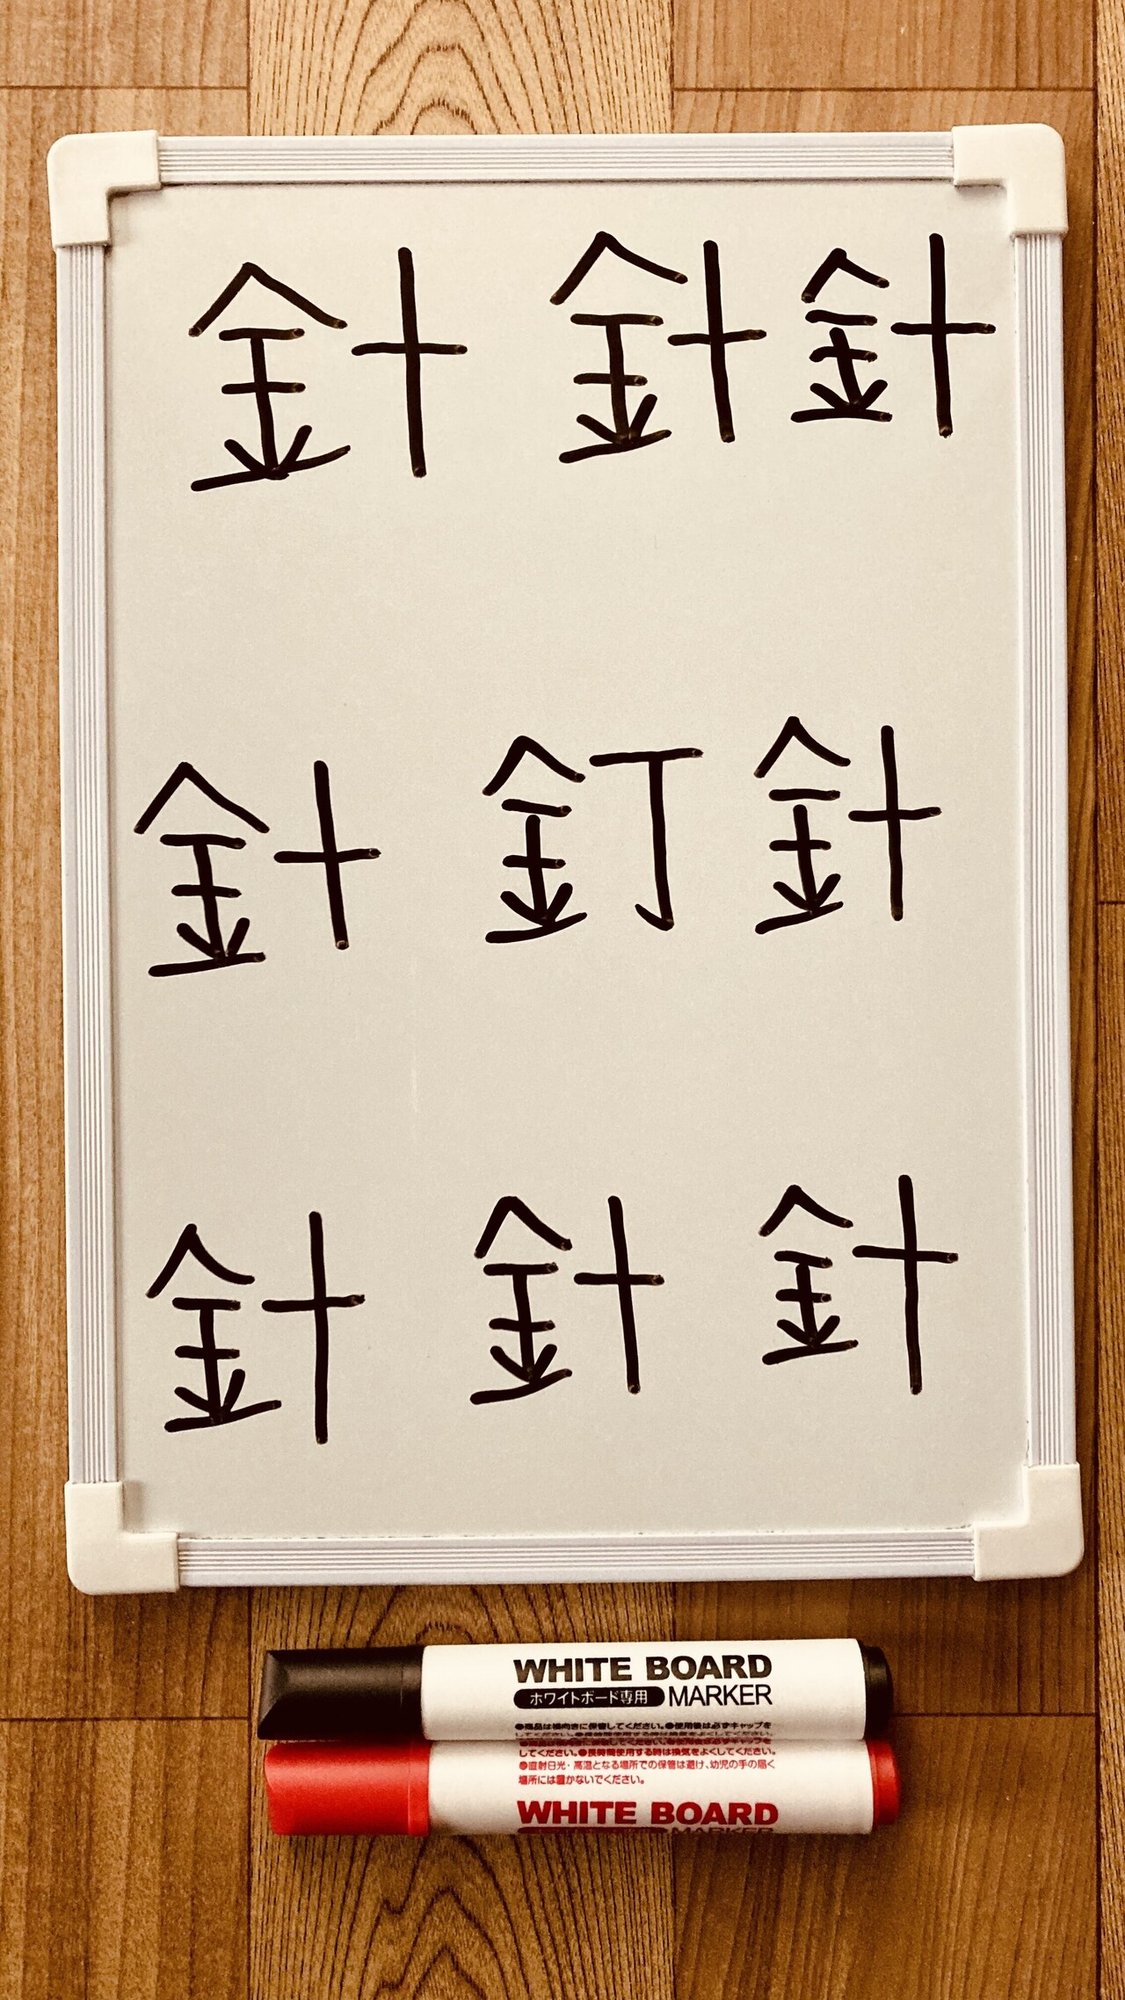 針 針 針
針 釘 針
針 針 針
WHITE BOARD
ホワイトボード専用 MARKER
●商品は横向きに保管してください。●使用後は必ずキャップを
してください。●長時間使用する時は換気をよくしてください。
●直射日光・高温となる場所での保管は避け、幼児の手の届く
場所には置かないでください。
WHITE BOARD
MARKER